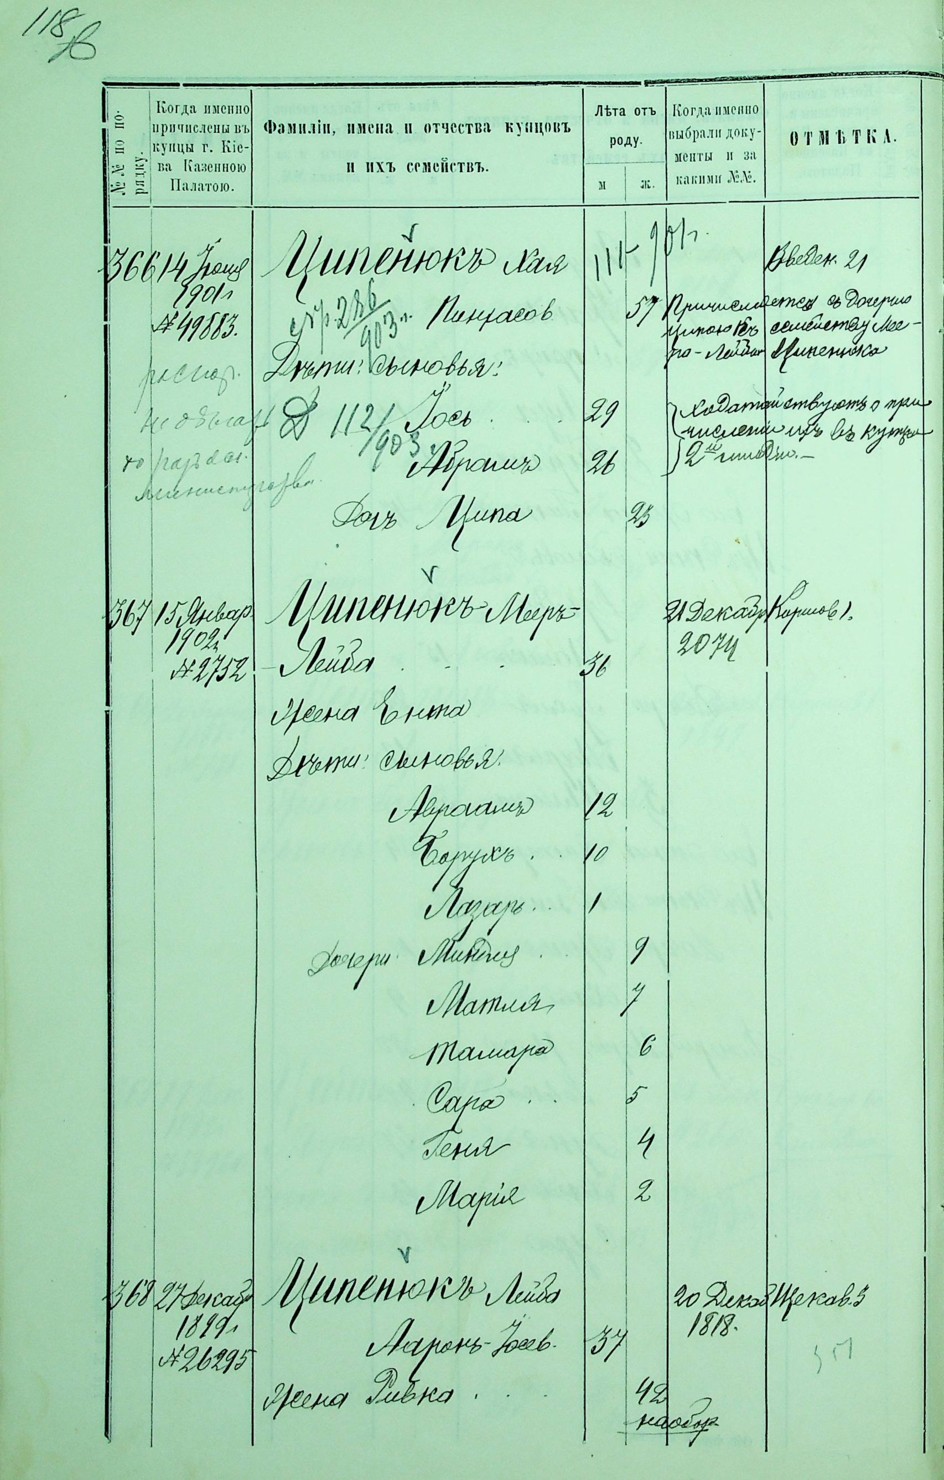 118
№№ по порядку.
Когда именно причислены въ купцы г. Кіева Казенною Палатою.
Фамиліи, имена и отчества купцовъ и ихъ семействъ.
Лѣта отъ роду.
м
ж.
Когда именно выбрали документы и за какими №№.
ОТМѢТКА.
366 14
1901г.
№ 49883.
Ципенюкъ Хая
901г.
Введен. 21
286
903г.
Пинхасов
57
Причисляется съ дочерью
Ципою къ семейству Мее-
ра-Лейбы Ципенюка
Дѣти: сыновья:
1121
903
Іось 29
Ходатайствуютъ о при
числении ихъ въ купцы
2ой гильдіи.
Абрамъ 26
Дочь Ципа 23
367 15 Январ.
1902г.
№ 2752
Ципенюкъ Мееръ-
Лейба 36
21 Декабр.
2074
Жена Ента
Дѣти: сыновья:
Авраамъ 12
Борухъ 10
Лазарь 1
Дочери 9
Матля 7
Тамара 6
Сара 5
Геня 4
Марія 2
368 27 Декабр.
1899г.
№ 26295
Ципенюкъ Лейба
Ааронъ-Іосев. 37
20 Декаб.
1818.
Щекав. 3
Жена Ривка 42
наобор.